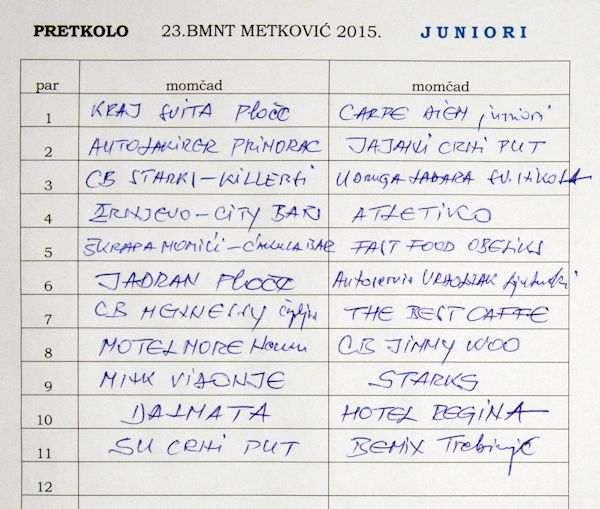 PRETKOLO 23.BMNT METKOVIĆ 2015. JUNIORI
par momčad momčad
1 KRAJ SVITA PLOČE CARPE DIEM juniori
2 AUTOLAKIRER PRIMORAC JAJAVI CRNI PUT
3 CB STARKI-KILLERSI UDRUGA ZADARA SV. NIKOLA
4 ZRNJEVO-CITY BARI ATLETICO
5 ŠKRAPA MOMIĆI-ĆAKULA BAR FAST FOOD OBELIKS
6 JADRAN PLOČE Autoservis
7 CB HENNESSY THE BEST CAFFE
8 MOTEL MORE Neum CB JIMMY WOO
9 MNK VIDONJE STARKS
10 DALMATA HOTEL REGINA
11 SU CRNI PUT BEMIX Trebinje
12